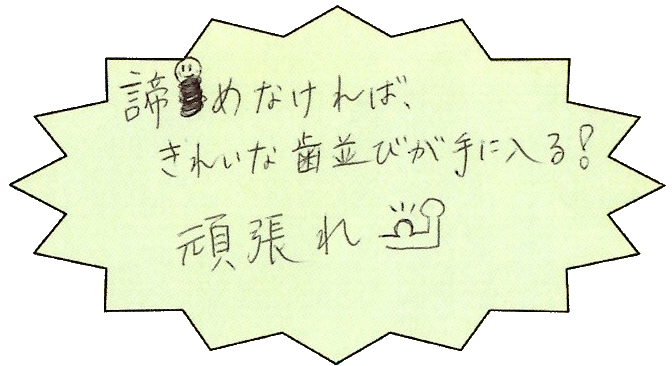 諦めなければ、
きれいな歯並びが手に入る！
頑張れ